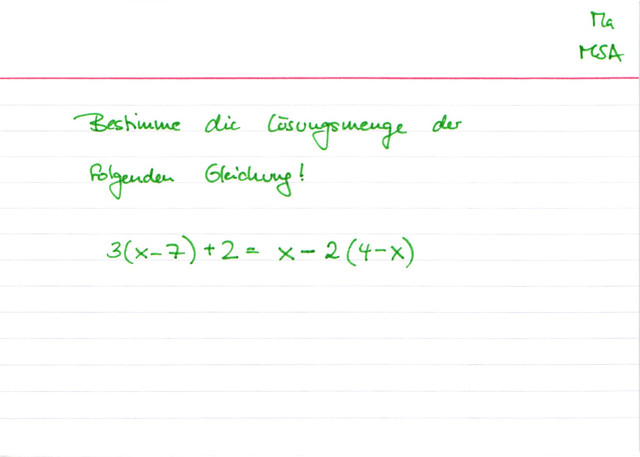 Ma
MSA
Bestimme die Lösungsmenge der
folgenden Gleichung!
3(x-7)+2 = x-2(4-x)